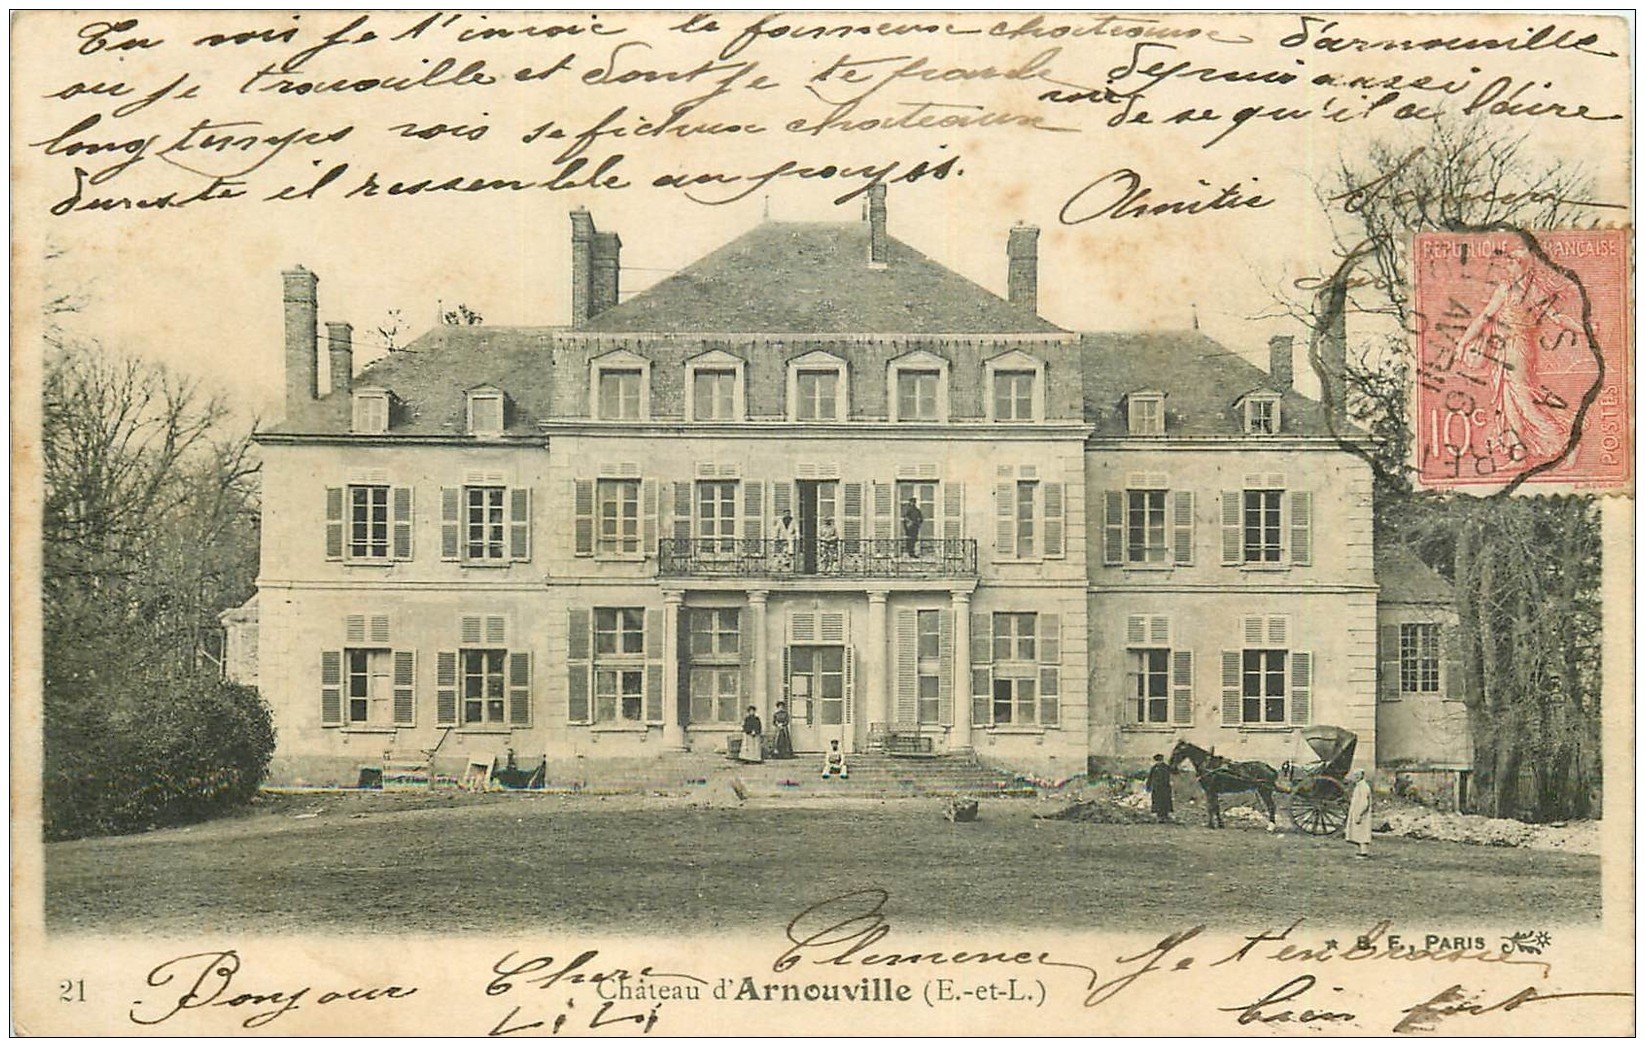 Tu vois je t'invoie le fameux chateaux d'arnouville
ou je travaille et dont je te parle depuis aussi
long temps vois se fichux chateaux de se qu'il a l'aire
dureste il ressemble au payis.
Amitie
RÉPUBLIQUE FRANÇAISE
10c
POSTES
AVRIL
21
Château d'Arnouville (E.-et-L.)
B. F., PARIS
Bonjour Chere Clemence Je t'enbrasse
Lili bien fort